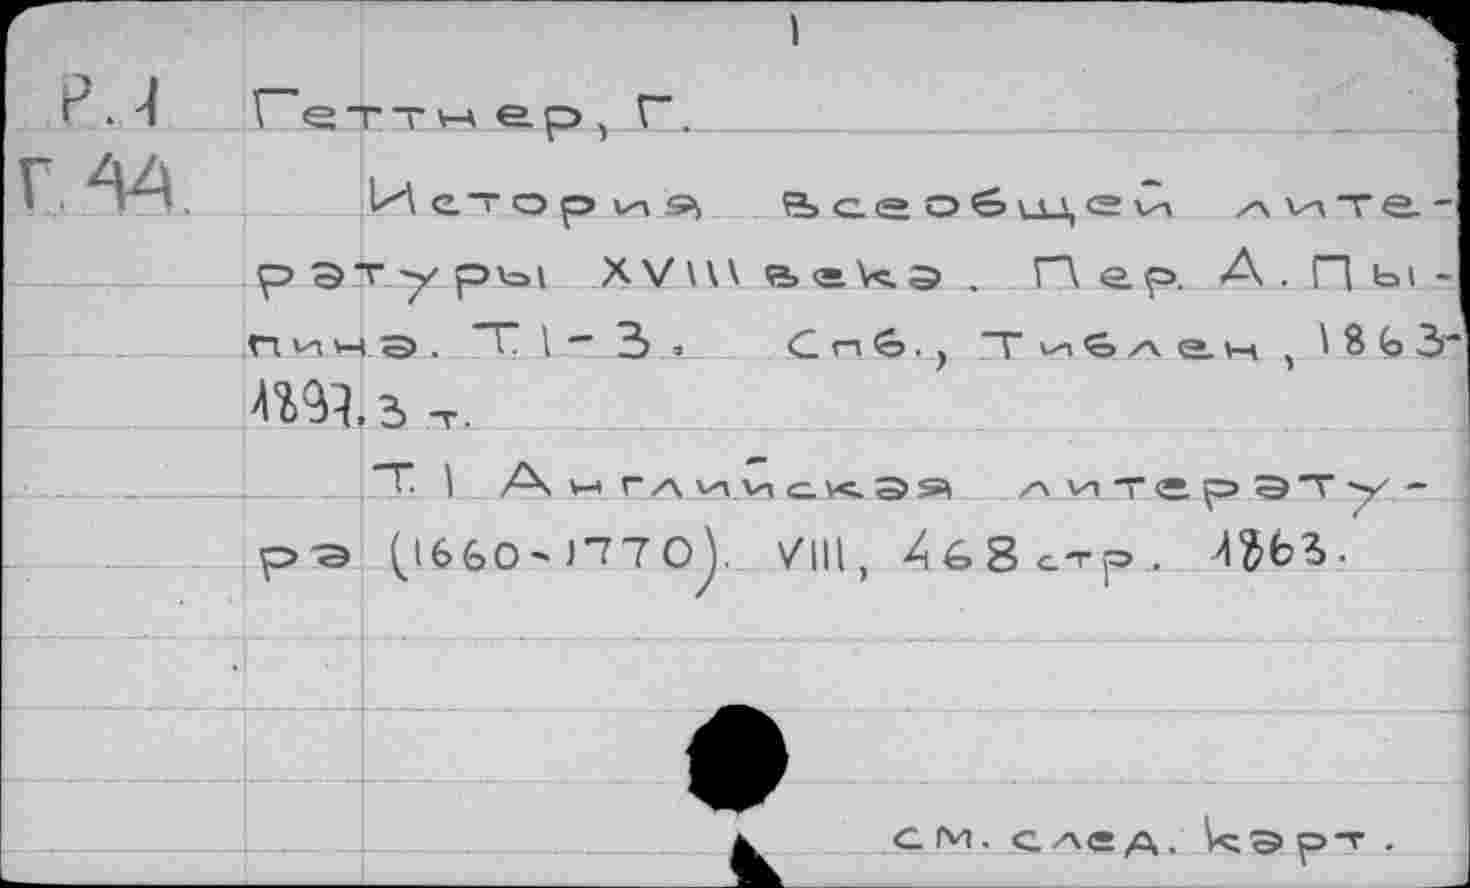 1
Р.1 Геттнер, Г.
Г.44. История всеобщей лите-
ратуры XVIII века. Пер. А. Пы-
пина. Т. 1-3. Спб., Тиблен, 1863-
1897. 3 т.
Т. 1 Английская литерату-
ра (1660-1770). VIII, 468 стр. 1863.
см. след. карт.